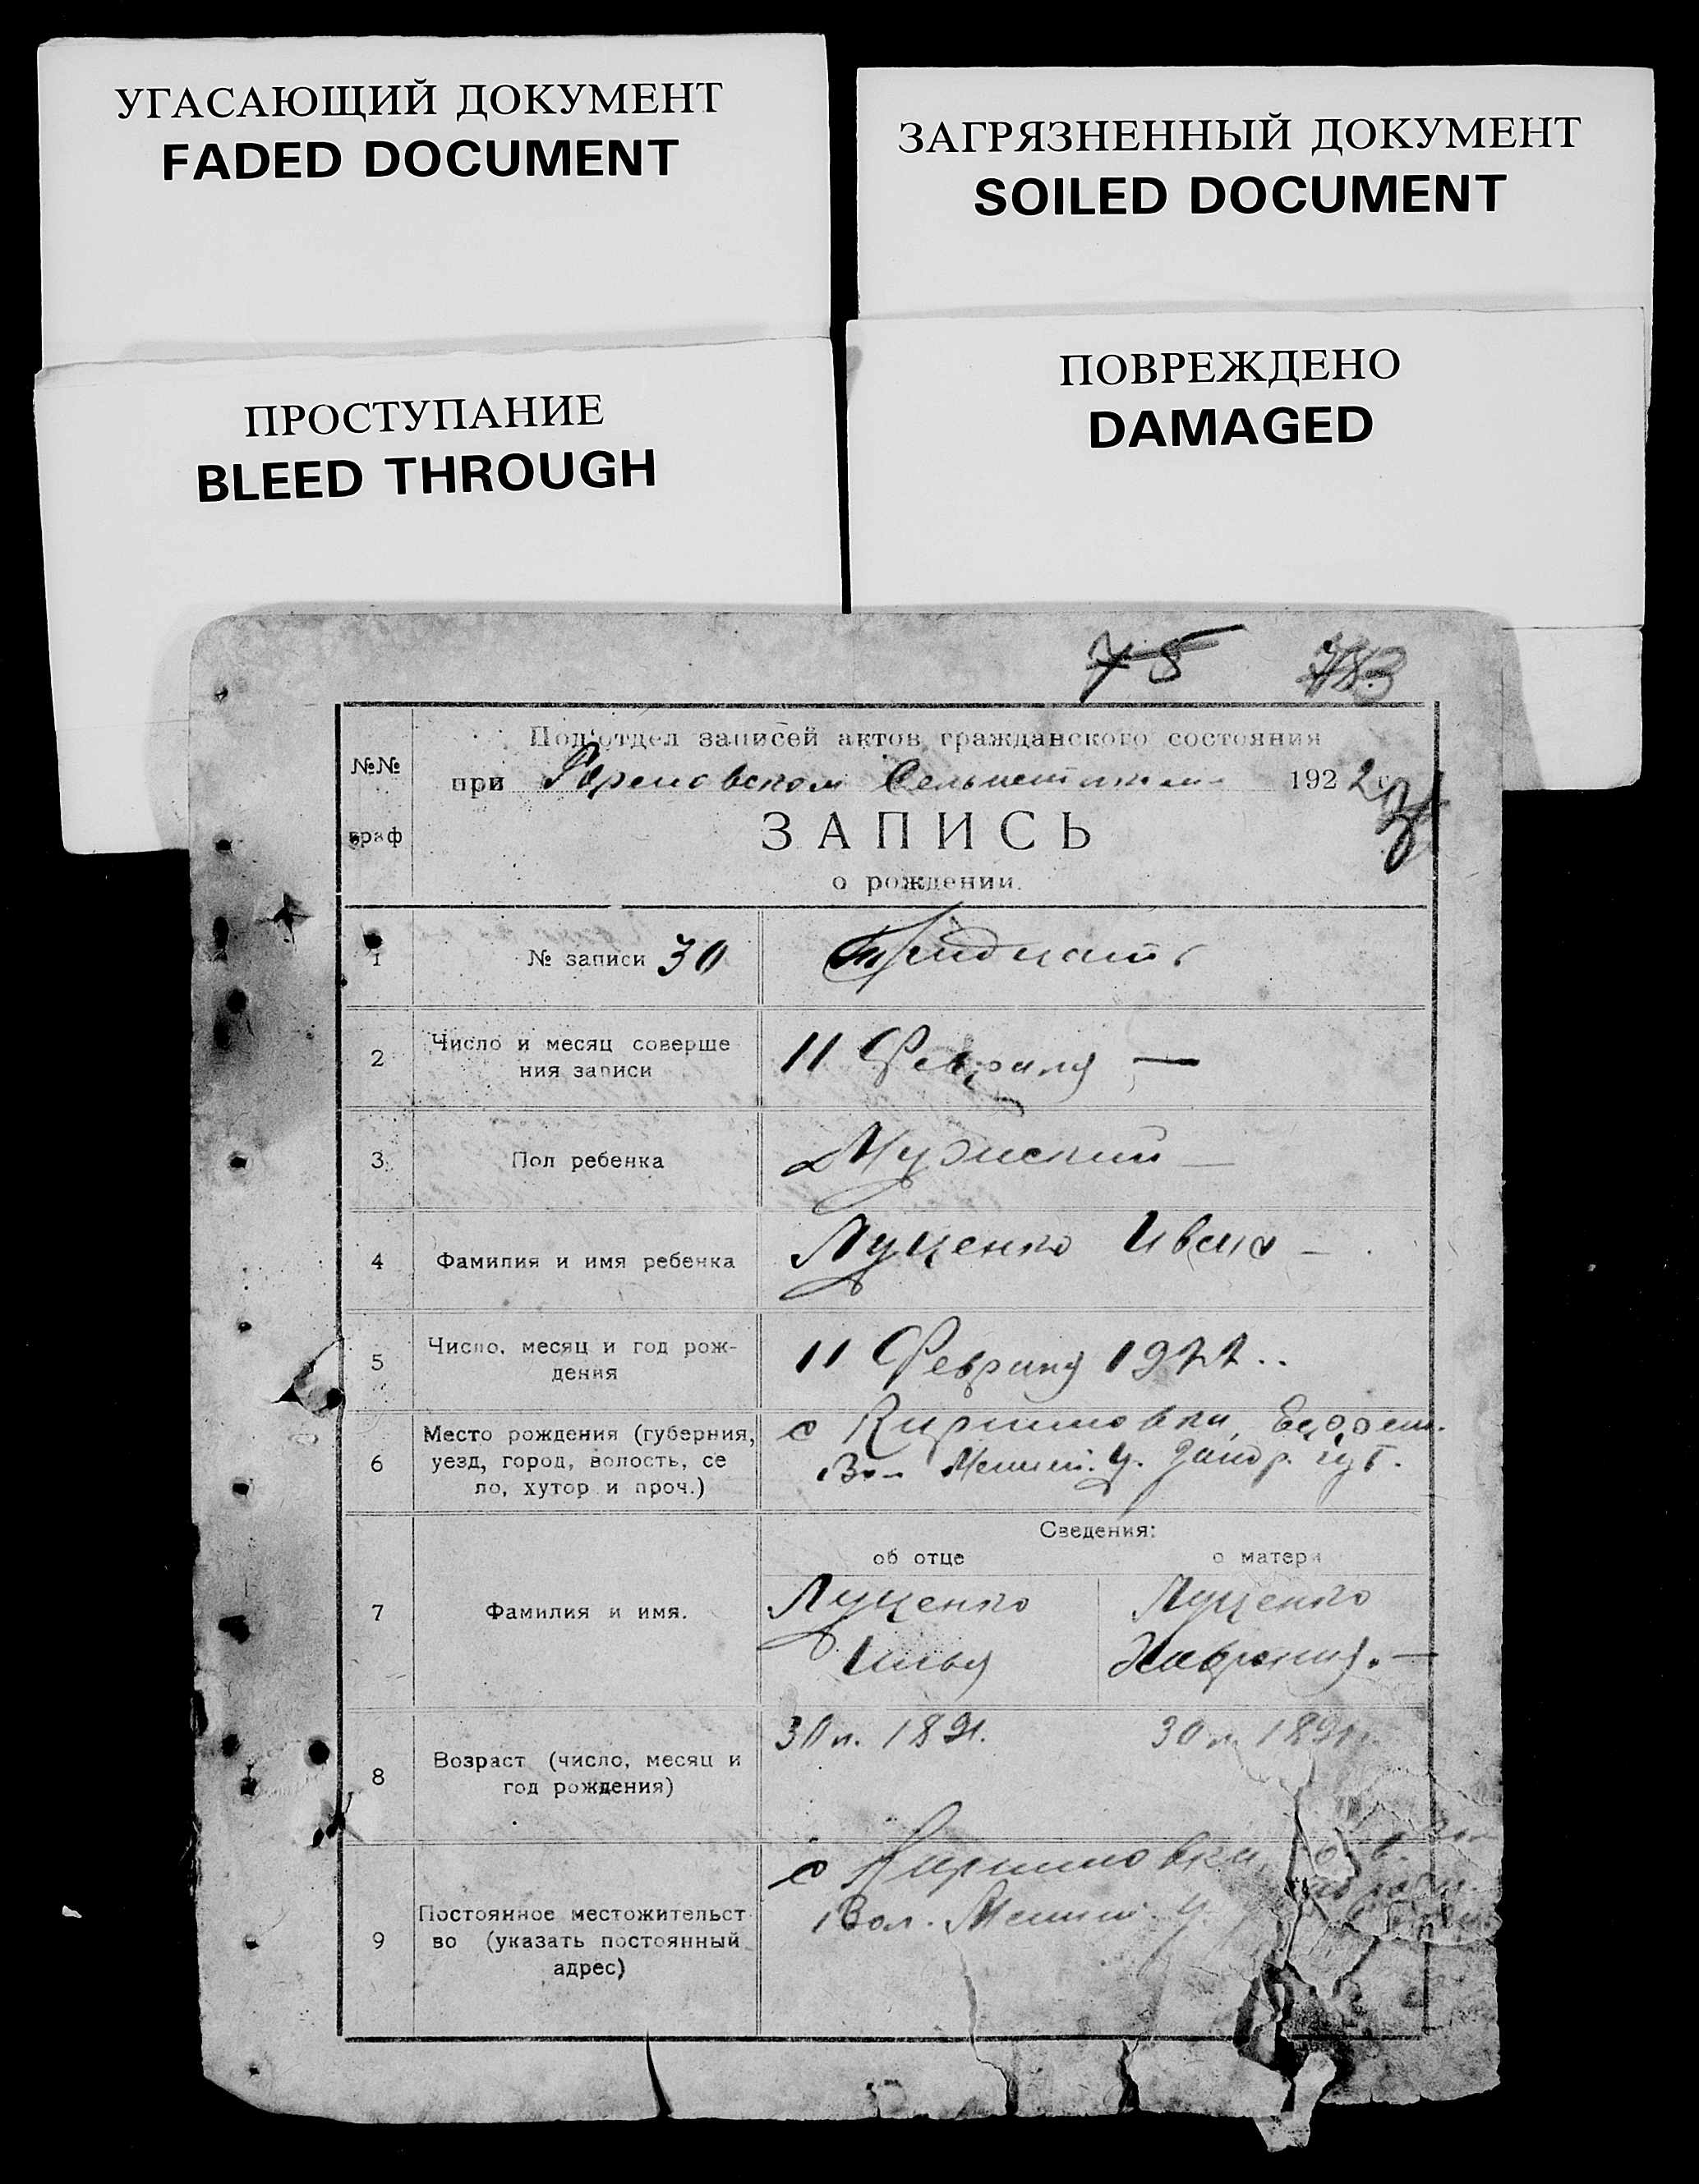 УГАСАЮЩИЙ ДОКУМЕНТ
FADED DOCUMENT
ЗАГРЯЗНЕННЫЙ ДОКУМЕНТ
SOILED DOCUMENT
ПРОСТУПАНИЕ
BLEED THROUGH
ПОВРЕЖДЕНО
DAMAGED
75
№№
граф
Подотдел записей актов гражданского состояния
при 1922 г.
ЗАПИСЬ
о рождении.
1 № записи 30 Тридцать
2 Число и месяц соверше
ния записи
11 Февраля —
3 Пол ребенка Мужский —
4 Фамилия и имя ребенка Луценко Иван —
5 Число, месяц и год рож-
дения
11 Февраля 1922..
6 Место рождения (губерния,
уезд, город, волость, се
ло, хутор и проч.)
с Кирилловки,
Вол. у. губ.
Сведения:
об отце о матери
7 Фамилия и имя.
Луценко Луценко
Илья Хаврония. —
8 Возраст (число, месяц и
год рождения)
30 л. 1891. 30 л. 1891
9 Постоянное местожительст
во (указать постоянный
адрес)
с Кирилловки
Вол. у.